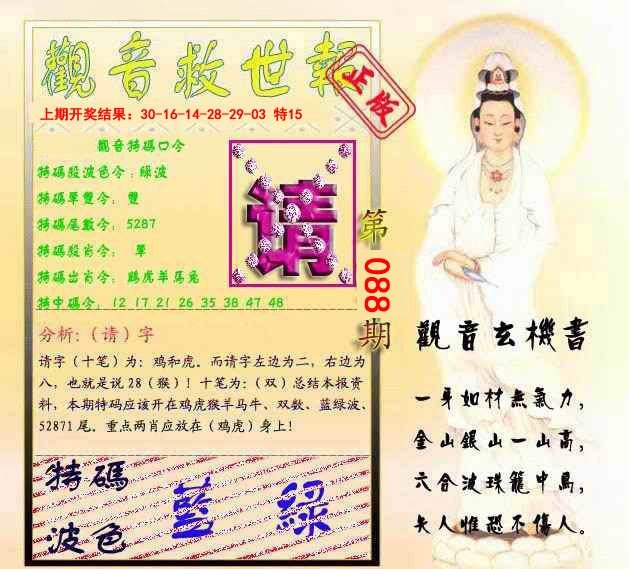 觀音救世報
正版
上期开奖结果：30-16-14-28-29-03 特15
觀音特碼口令
特碼段波色令：綠波
特碼單雙令： 雙
特碼尾數令： 5287
特碼段肖令： 單
特碼出肖令： 鷄虎羊馬兔
特中碼令： 12 17 21 26 35 38 47 48
请
第
088
期
分析:（请）字
请字（十笔）为：鸡和虎。而请字左边为二，右边为
八，也就是说28（猴）！十笔为：（双）总结本报资
料，本期特码应该开在鸡虎猴羊马牛、双数、蓝绿波、
52871尾。重点两肖应放在（鸡虎）身上！
特碼
波色
藍 綠
觀音玄機書
一身如材無氣力，
金山銀山一山高，
六合波珠籠中鳥，
矢人惟恐不傷人。